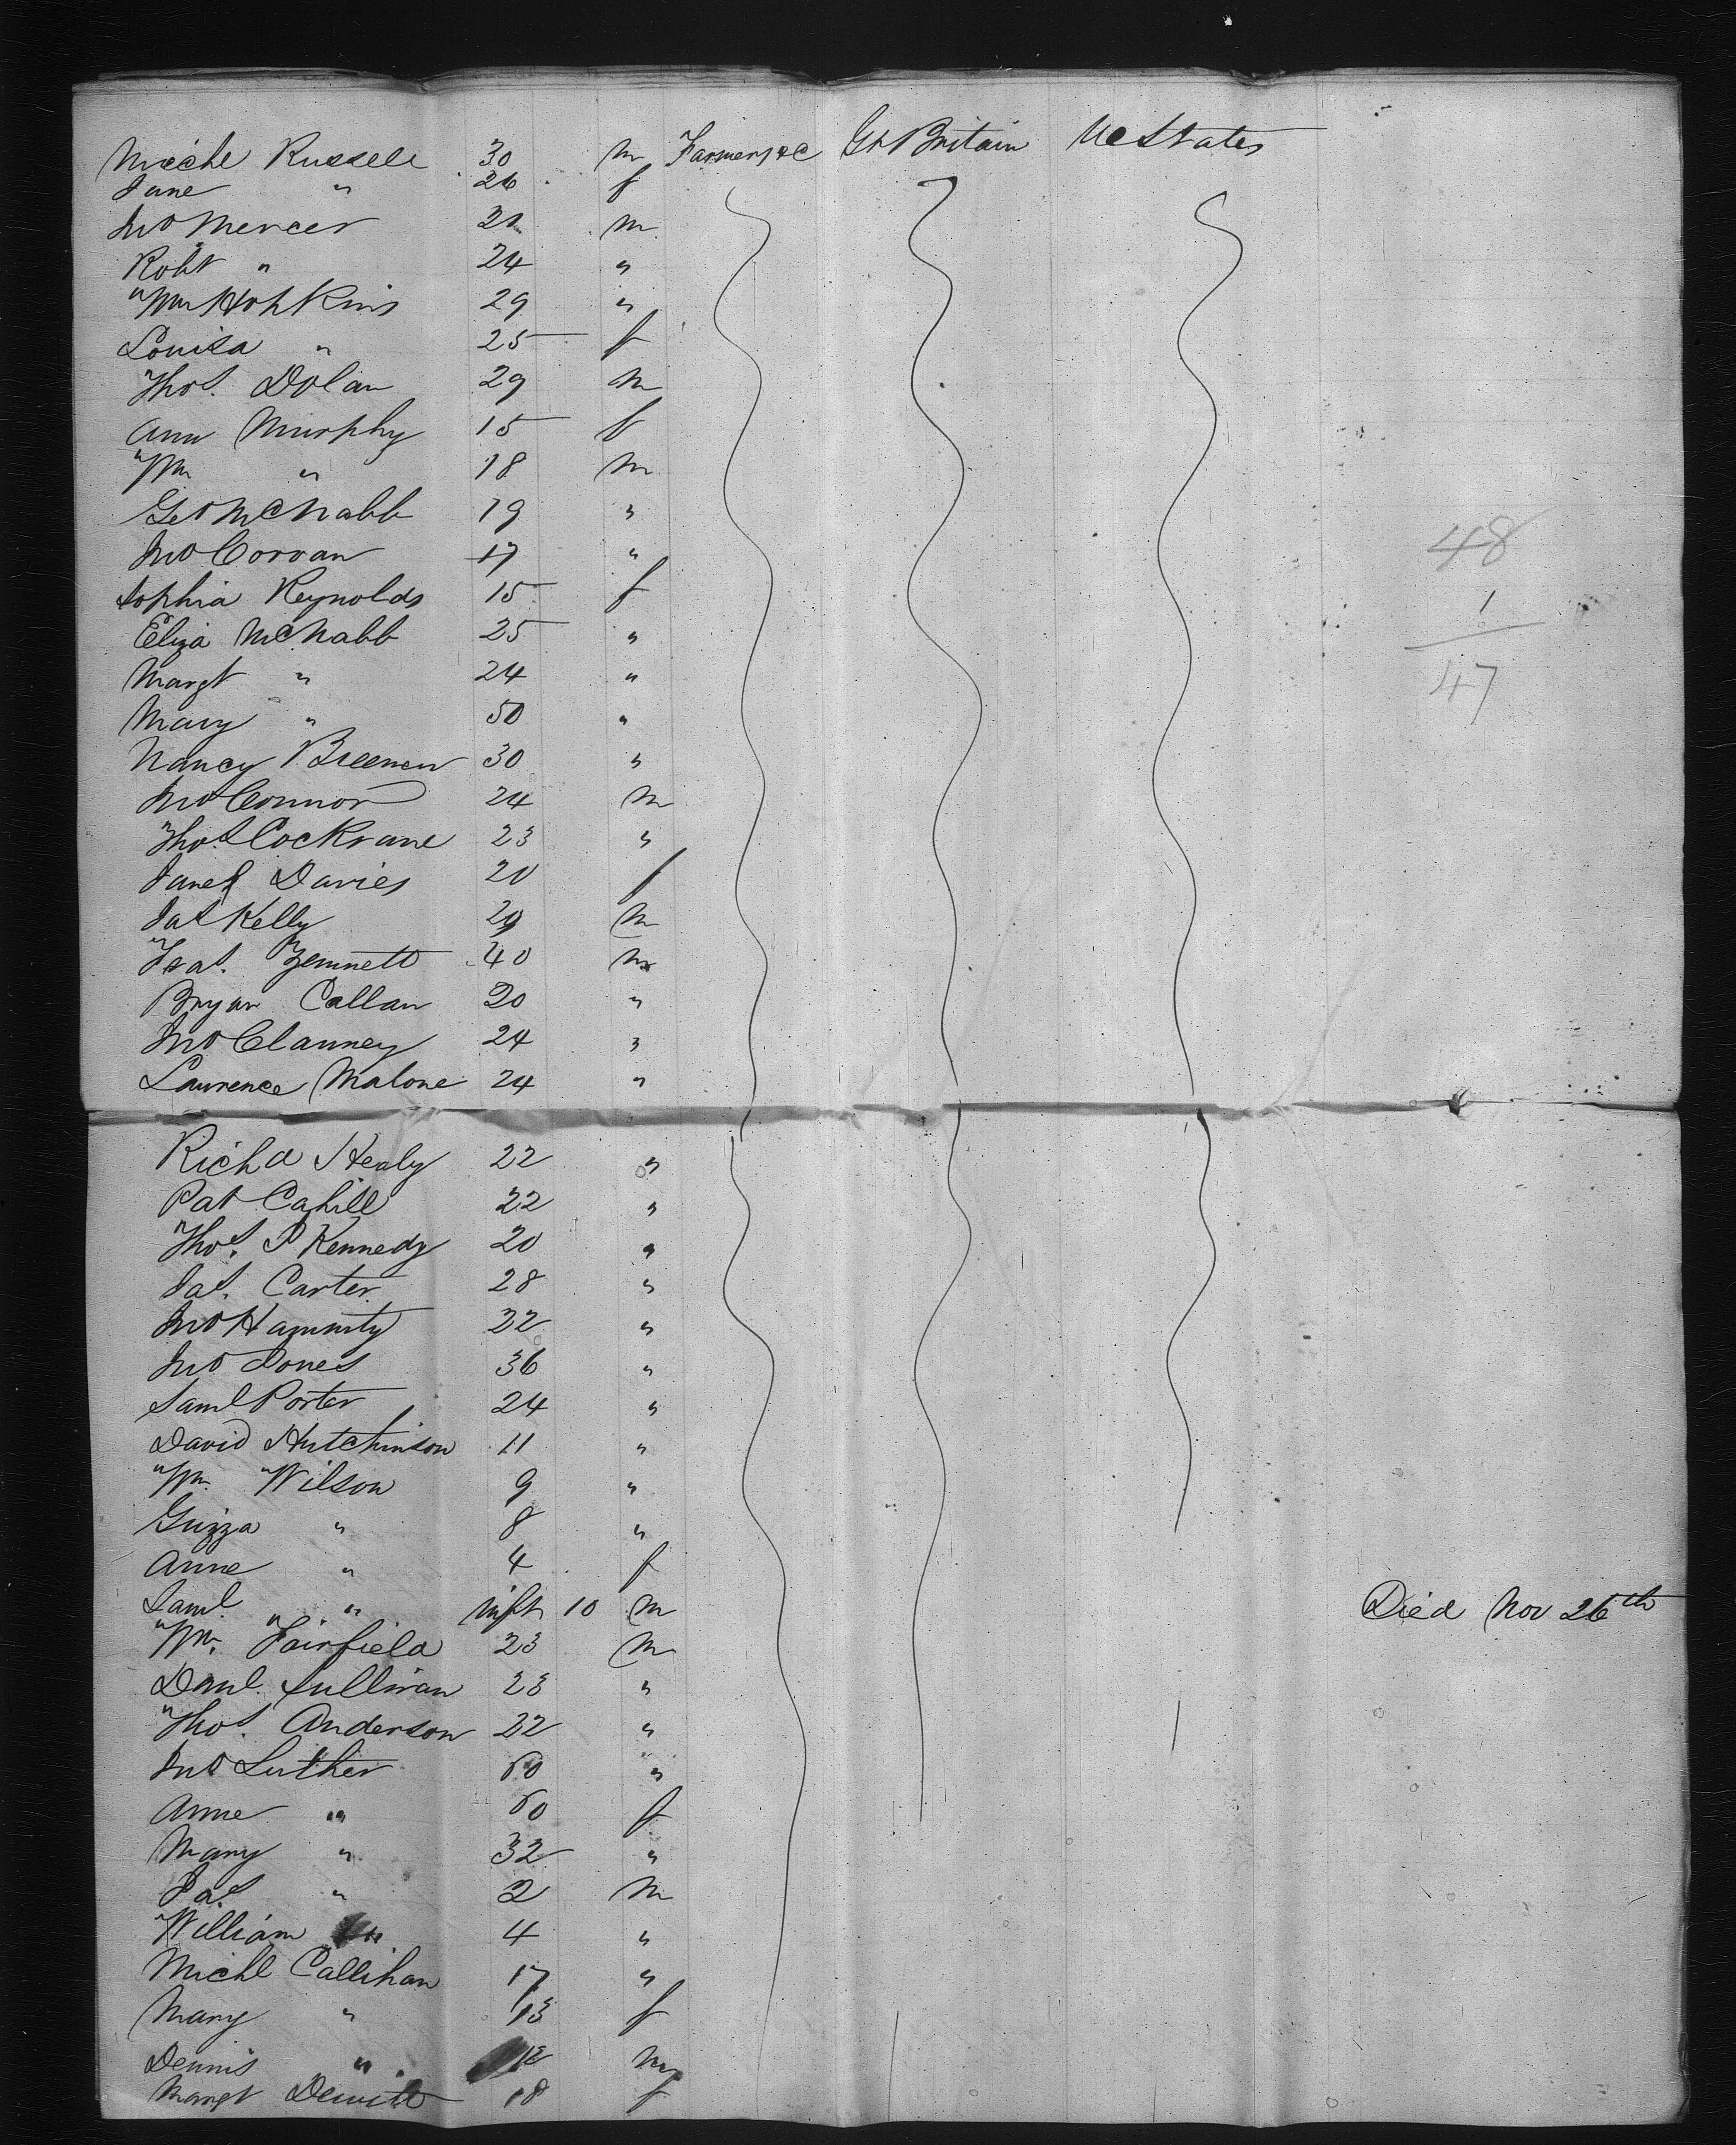 Michl Russell 30 m Farmers &c Gt Britain Ue States
Jane " 26 f
Jno Mercer 21 m
Robt " 24 "
Wm Hopkins 29 "
Louisa " 25 f
Thos. Dolan 29 m
Ann Murphy 15 f
Wm " 18 m
Geo McNabb 19 "
Jno Corvan 17 "
Sophia Reynolds 15 f
Eliza McNabb 25 "
Margt " 24 "
Mary " 50 "
Nancy Breenen 30 "
Jno Connor 24 m
Thos Cockrane 23 "
Jane Davies 20 f
Jas Kelly 29 m
40 m
Bryan Callan 20 "
Jno Clanney 24 "
Lawrence Malone 24 "
48
1
47
Richd Healy 22 "
Pat Cahill 22 "
Thos. P Kennedy 20 "
Jas. Carter 28 "
Jno 22 "
Jno Jones 36 "
Saml Porter 24 "
David Hutchinson 11 "
Wm. Wilson 9 "
Grizza " 8 "
Anne " 4 f
Saml " inft 10 m Died Nov 26th
Wm. Fairfield 23 m
Danl. Sullivan 23 "
Thos. Anderson 22 "
Jno Luther 60 "
Anne " 60 f
Mary " 32 "
Jas " 2 m
William " 4 "
Michl Callihan 17 "
Mary " 13 f
Dennis " 12 m
Margt Dewitt 18 f